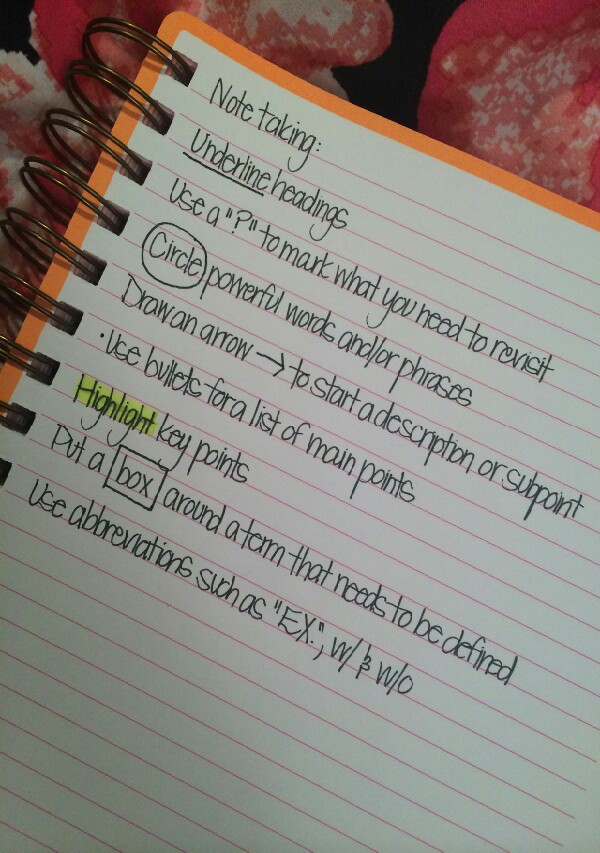 Note taking:
Underline headings
Use a "?" to mark what you need to revisit
Circle powerful words and/or phrases
Draw an arrow → to start a description or subpoint
· Use bullets for a list of main points
Highlight key points
Put a box around a term that needs to be defined
Use abbreviations such as "EX.", w/ & w/o